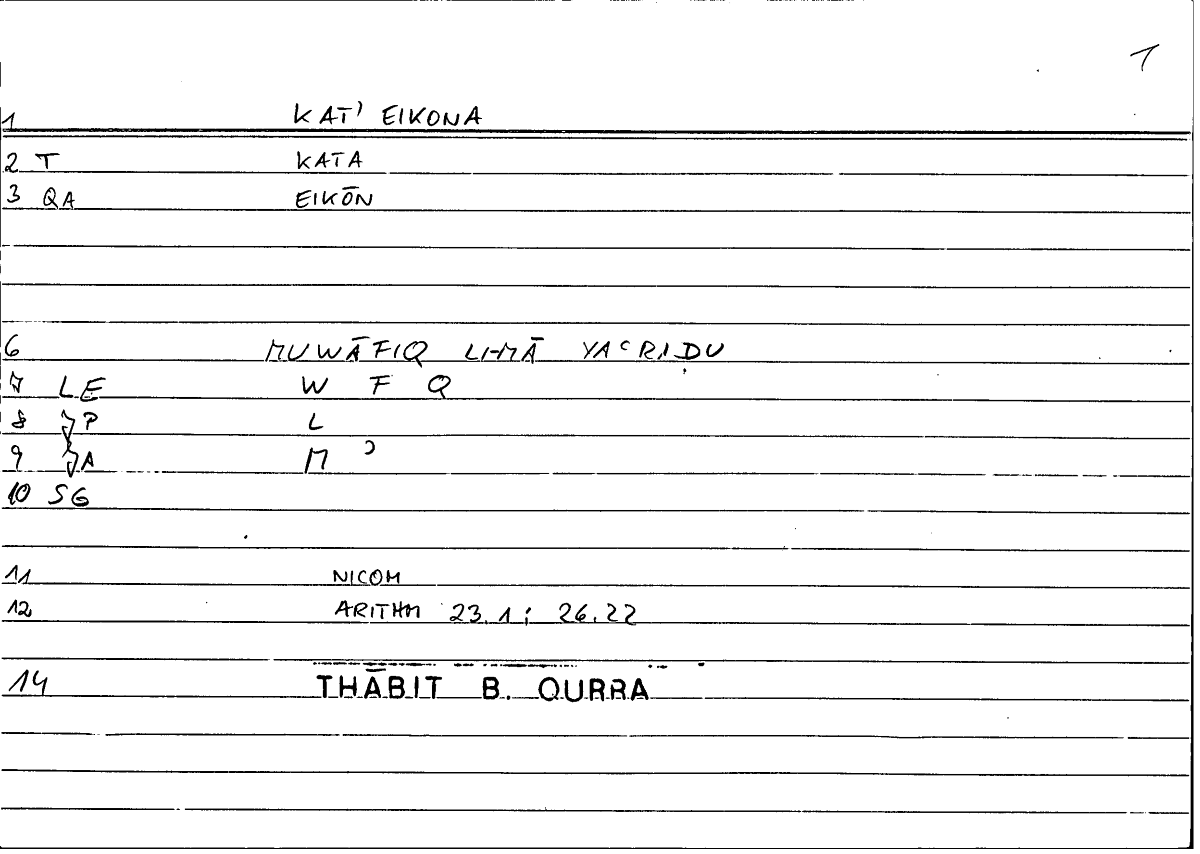 1
1 KAT' EIKONA
2 T KATA
3 QA EIKŌN
6 MUWĀFIQ LI-MĀ YAʿRIḌU
7 LE W F Q
8 P L
9 A M ʾ
10 SG
11 NICOM
12 ARITHM 23.1; 26.22
14 THĀBIT B. QURRA